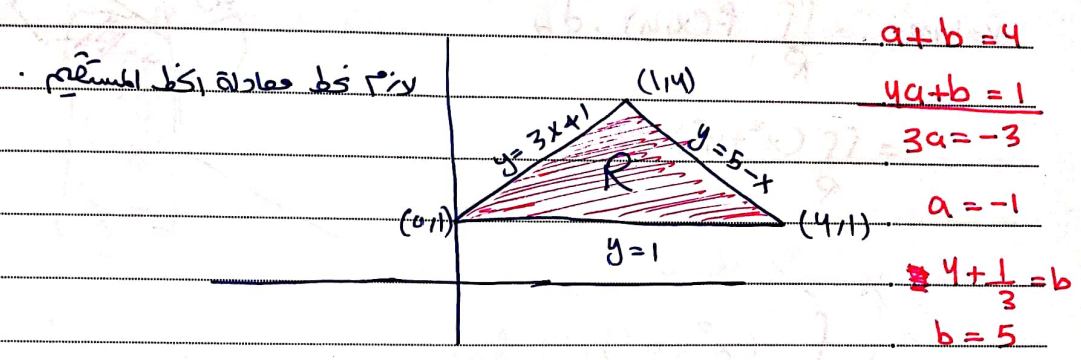 لازم نحط معادلة الخط المستقيم .
(1,4)
y = 3x+1
y = 5-x
R
(0,1)
(4,1)
y = 1
a + b = 4
4a + b = 1
3a = -3
a = -1
4 + 1/3 = b
b = 5